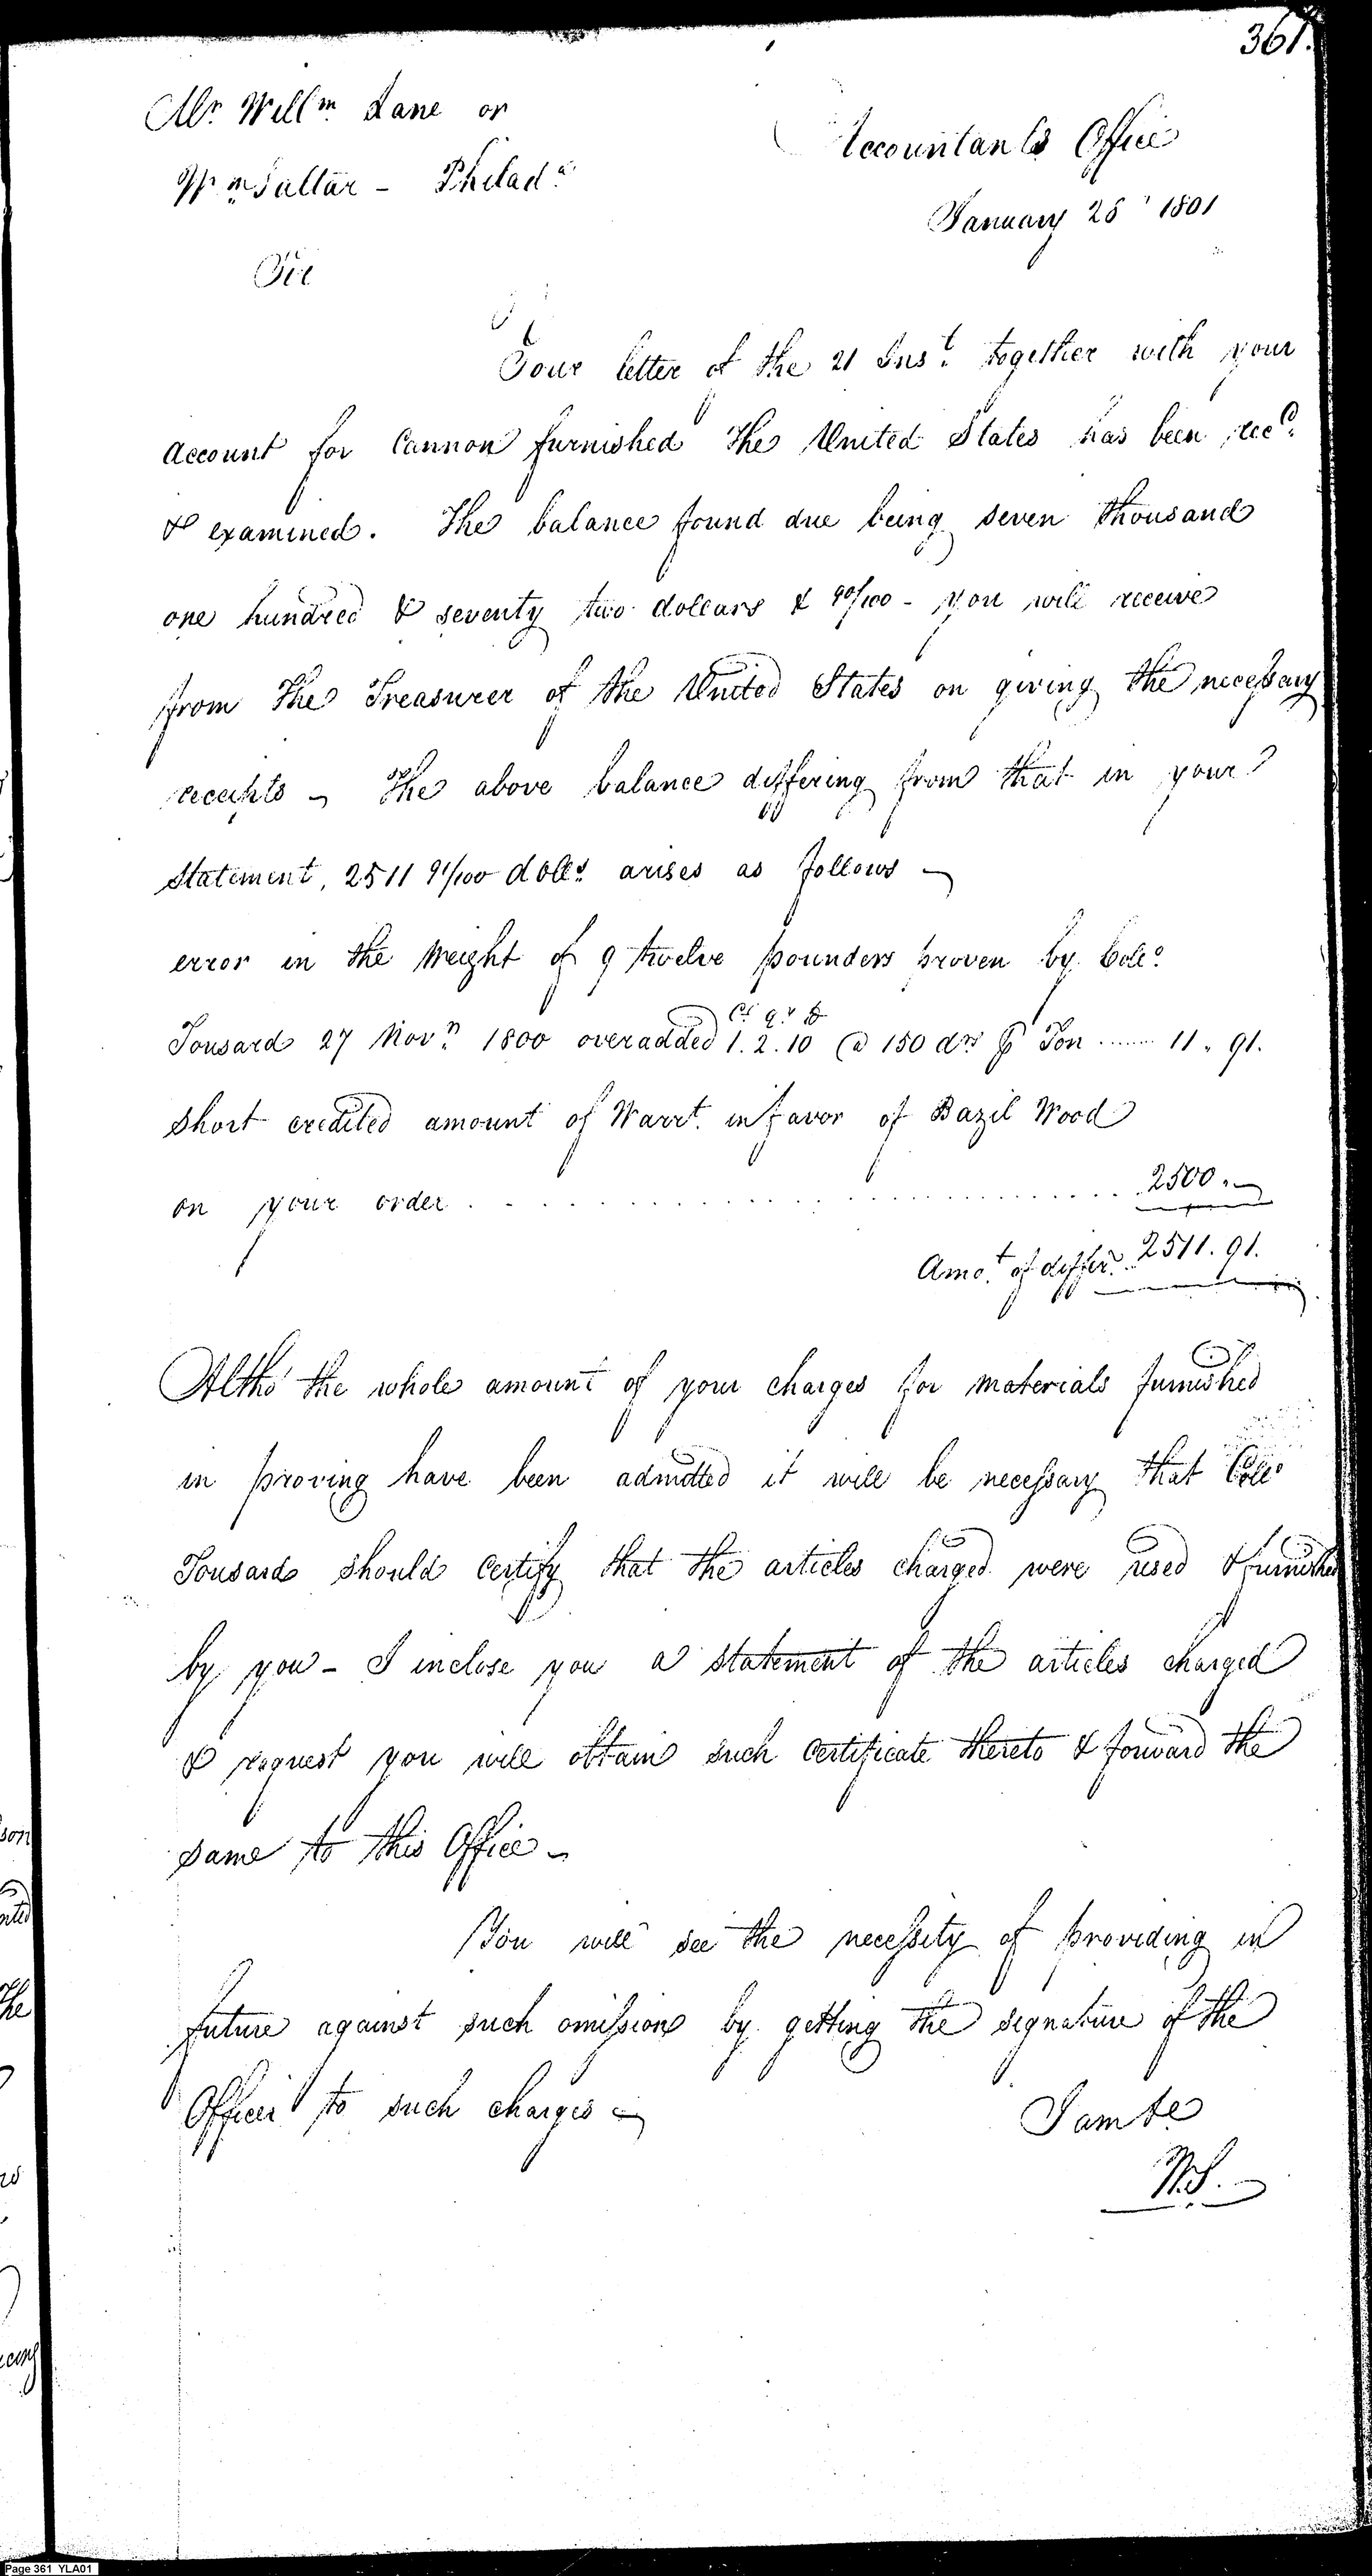 361.
Mr. Willm. Lane or
Wm Saltar - Philada.
Accountants Office
January 28 1801
Sir
Your letter of the 21 Inst. together with your
account for Cannon furnished the United States has been recd.
& examined. The balance found due being seven thousand
one hundred & seventy two dollars & 90/100 - you will receive
from the Treasurer of the United States on giving the necessary
receipts - The above balance differing from that in your
statement, 2511 91/100 dolls. arises as follows -
error in the weight of 9 twelve pounders proven by Colo.
Ct qr lb
Tousard 27 Novr. 1800 overadded 1. 2. 10 @ 150 drs ⅌ Ton ...... 11. 91.
short credited amount of Warrt. in favor of Bazil Wood
on your order . . . . . . . . . . . . . . . . . . . . 2500. -
Amot. of differ. .. 2511. 91.
Altho' the whole amount of your charges for materials furnished
in proving have been admitted it will be necessary that Colo
Tousard should certify that the articles charged were used & furnished
by you - I inclose you a statement of the articles charged
& request you will obtain such certificate thereto & forward the
same to this Office -
You will see the necessity of providing in
future against such omissions by getting the signature of the
Officer to such charges -
I am &c
W.S.
son
The
Page 361 YLA01